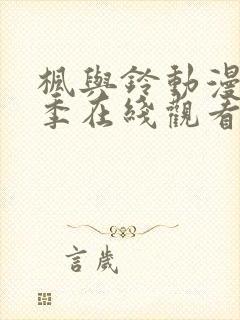 楓與鈴動漫
季在綫觀看
言歲